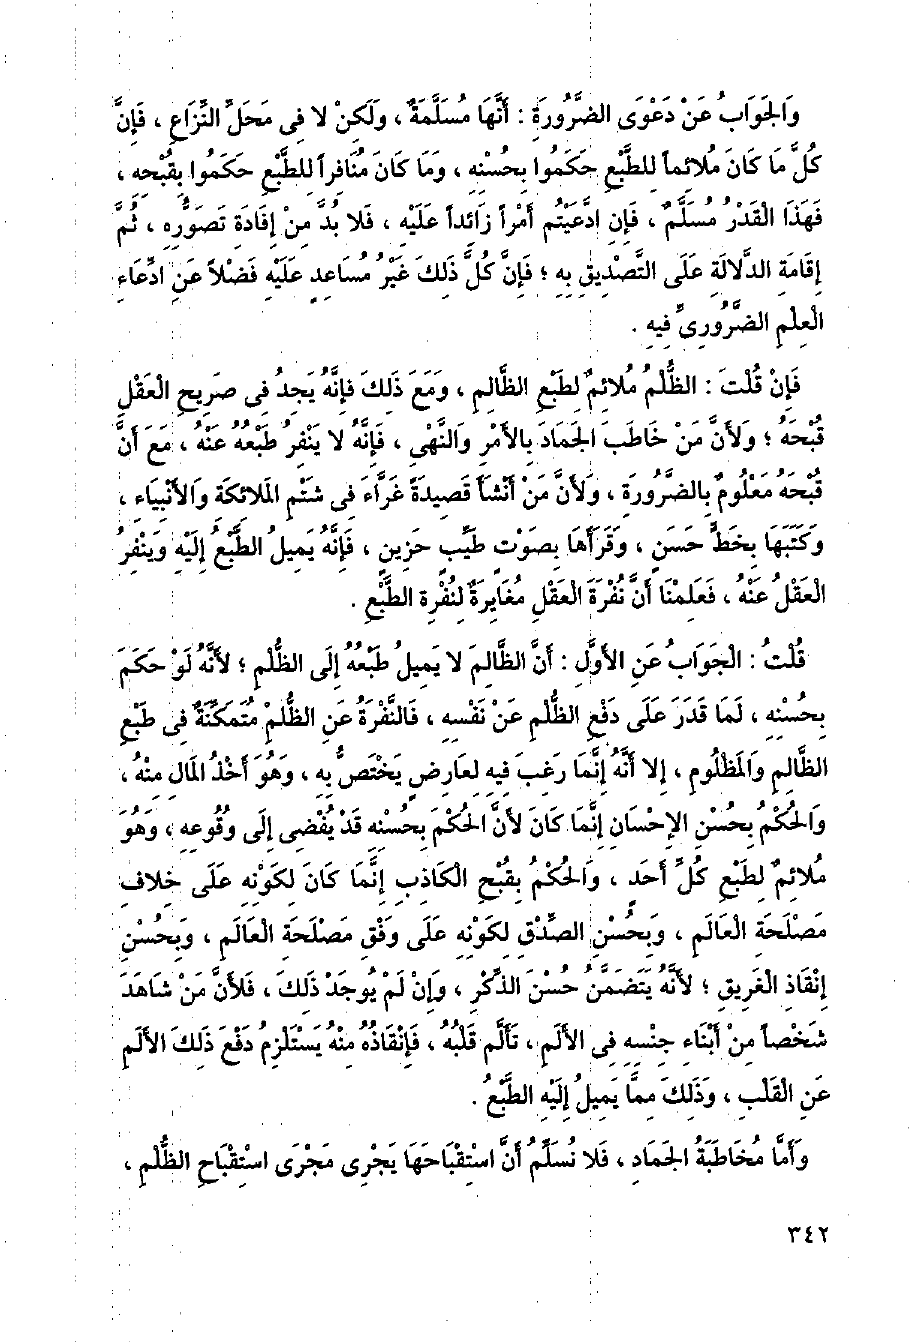 وَالجَوَابُ عَنْ دَعْوَى الضَّرُورَةِ : أَنَّهَا مُسَلَّمَةٌ ، وَلَكِنْ لا فِى مَحَلِّ النِّزَاعِ ، فَإِنَّ
كُلَّ مَا كَانَ مُلائماً للطَّبْعِ حَكَمُوا بِحُسْنِه ، وَمَا كَانَ مُنَافراً للطَّبْعِ حَكَمُوا بِقُبْحِه ،
فَهَذَا الْقَدْرُ مُسَلَّمٌ ، فَإِن ادَّعَيْتُم أَمْراً زَائداً عَلَيْهِ ، فَلا بُدَّ مِنْ إِفَادَةِ تَصَوُّرِه ، ثُمَّ
إِقَامَةِ الدَّلالَةِ عَلَى التَّصْدِيقِ بِهِ ؛ فَإِنَّ كُلَّ ذَلِكَ غَيْرُ مُسَاعِدٍ عَلَيْهِ فَضْلاً عَنِ ادِّعَاءِ
الْعِلْمِ الضَّرُورِىِّ فِيهِ .
فَإِنْ قُلْتَ : الظُّلْمُ مُلائِمٌ لِطَبْعِ الظَّالِمِ ، وَمَعَ ذَلِكَ فَإِنَّهُ يَجِدُ فِى صَرِيحِ الْعَقْلِ
قُبْحَهُ ؛ وَلأَنَّ مَنْ خَاطَبَ الجَمَادَ بِالأَمْرِ وَالنَّهْىِ ، فَإِنَّهُ لا يَنْفِرُ طَبْعُهُ عَنْهُ ، مَعَ أَنَّ
قُبْحَهُ مَعْلُومٌ بِالضَّرُورَةِ ، وَلأَنَّ مَنْ أَنْشَأَ قَصِيدَةً غَرَّاءَ فِى شَتْمِ المَلائكَةِ وَالأَنْبِيَاءِ ،
وَكَتَبَهَا بِخَطٍّ حَسَنٍ ، وَقَرَأَهَا بِصَوْتٍ طَيِّبٍ حَزِينٍ ، فَإِنَّهُ يَمِيلُ الطَّبْعُ إِلَيْهِ وَيَنْفِرُ
الْعَقْلُ عَنْهُ ، فَعَلِمْنَا أَنَّ نُفْرَةَ الْعَقْلِ مُغَايِرَةٌ لِنُفْرَةِ الطَّبْعِ .
قُلْتُ : الْجَوَابُ عَنِ الأَوَّلِ : أَنَّ الظَّالِمَ لا يَمِيلُ طَبْعُهُ إِلَى الظُّلْمِ ؛ لأَنَّهُ لَوْ حَكَمَ
بِحُسْنِهِ ، لَمَا قَدَرَ عَلَى دَفْعِ الظُّلْمِ عَنْ نَفْسِهِ ، فَالنُّفْرَةُ عَنِ الظُّلْمِ مُتَمَكِّنَةٌ فِى طَبْعِ
الظَّالِمِ وَالمَظْلُومِ ، إِلا أَنَّهُ إِنَّمَا رَغِبَ فِيهِ لِعَارِضٍ يَخْتَصُّ بِهِ ، وَهُوَ أَخْذُ المَالِ مِنْهُ ،
وَالحُكْمُ بِحُسْنِ الإِحْسَانِ إِنَّمَا كَانَ لأَنَّ الحُكْمَ بِحُسْنِهِ قَدْ يُفْضِى إِلَى وُقُوعِهِ ، وَهُوَ
مُلائِمٌ لِطَبْعِ كُلِّ أَحَدٍ ، وَالحُكْمُ بِقُبْحِ الْكَاذِبِ إِنَّمَا كَانَ لِكَوْنِهِ عَلَى خِلافِ
مَصْلَحَةِ الْعَالَمِ ، وَبِحُسْنِ الصِّدْقِ لِكَوْنِهِ عَلَى وَفْقِ مَصْلَحَةِ الْعَالَمِ ، وَبِحُسْنِ
إِنْقَاذِ الْغَرِيقِ ؛ لأَنَّهُ يَتَضَمَّنُ حُسْنَ الذِّكْرِ ، وَإِنْ لَمْ يُوجَدْ ذَلِكَ ، فَلأَنَّ مَنْ شَاهَدَ
شَخْصاً مِنْ أَبْنَاءِ جِنْسِهِ فِى الأَلَمِ ، تَأَلَّمَ قَلْبُهُ ، فَإِنْقَاذُهُ مِنْهُ يَسْتَلْزِمُ دَفْعَ ذَلِكَ الأَلَمِ
عَنِ الْقَلْبِ ، وَذَلِكَ مِمَّا يَمِيلُ إِلَيْهِ الطَّبْعُ .
وَأَمَّا مُخَاطَبَةُ الجَمَادِ ، فَلا نُسَلِّمُ أَنَّ اسْتِقْبَاحَهَا يَجْرِى مَجْرَى اسْتِقْبَاحِ الظُّلْمِ ،
٣٤٢